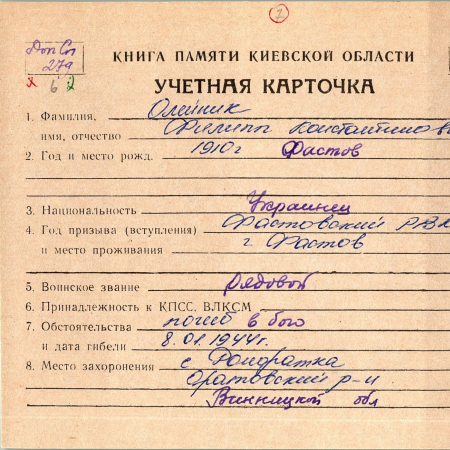 2
Доп Сп
279
я 6 2
КНИГА ПАМЯТИ КИЕВСКОЙ ОБЛАСТИ
УЧЕТНАЯ КАРТОЧКА
1. Фамилия, Олейник
имя, отчество Филипп Константинов
2. Год и место рожд. 1910г Фастов
3. Национальность Украинец
4. Год призыва (вступления) Фастовский РВК
и место проживания г Фастов
5. Воинское звание рядовой
6. Принадлежность к КПСС. ВЛКСМ
7. Обстоятельства погиб в бою
и дата гибели 8.01.1944г.
8. Место захоронения с
Оратовский р-н
Винницкой обл